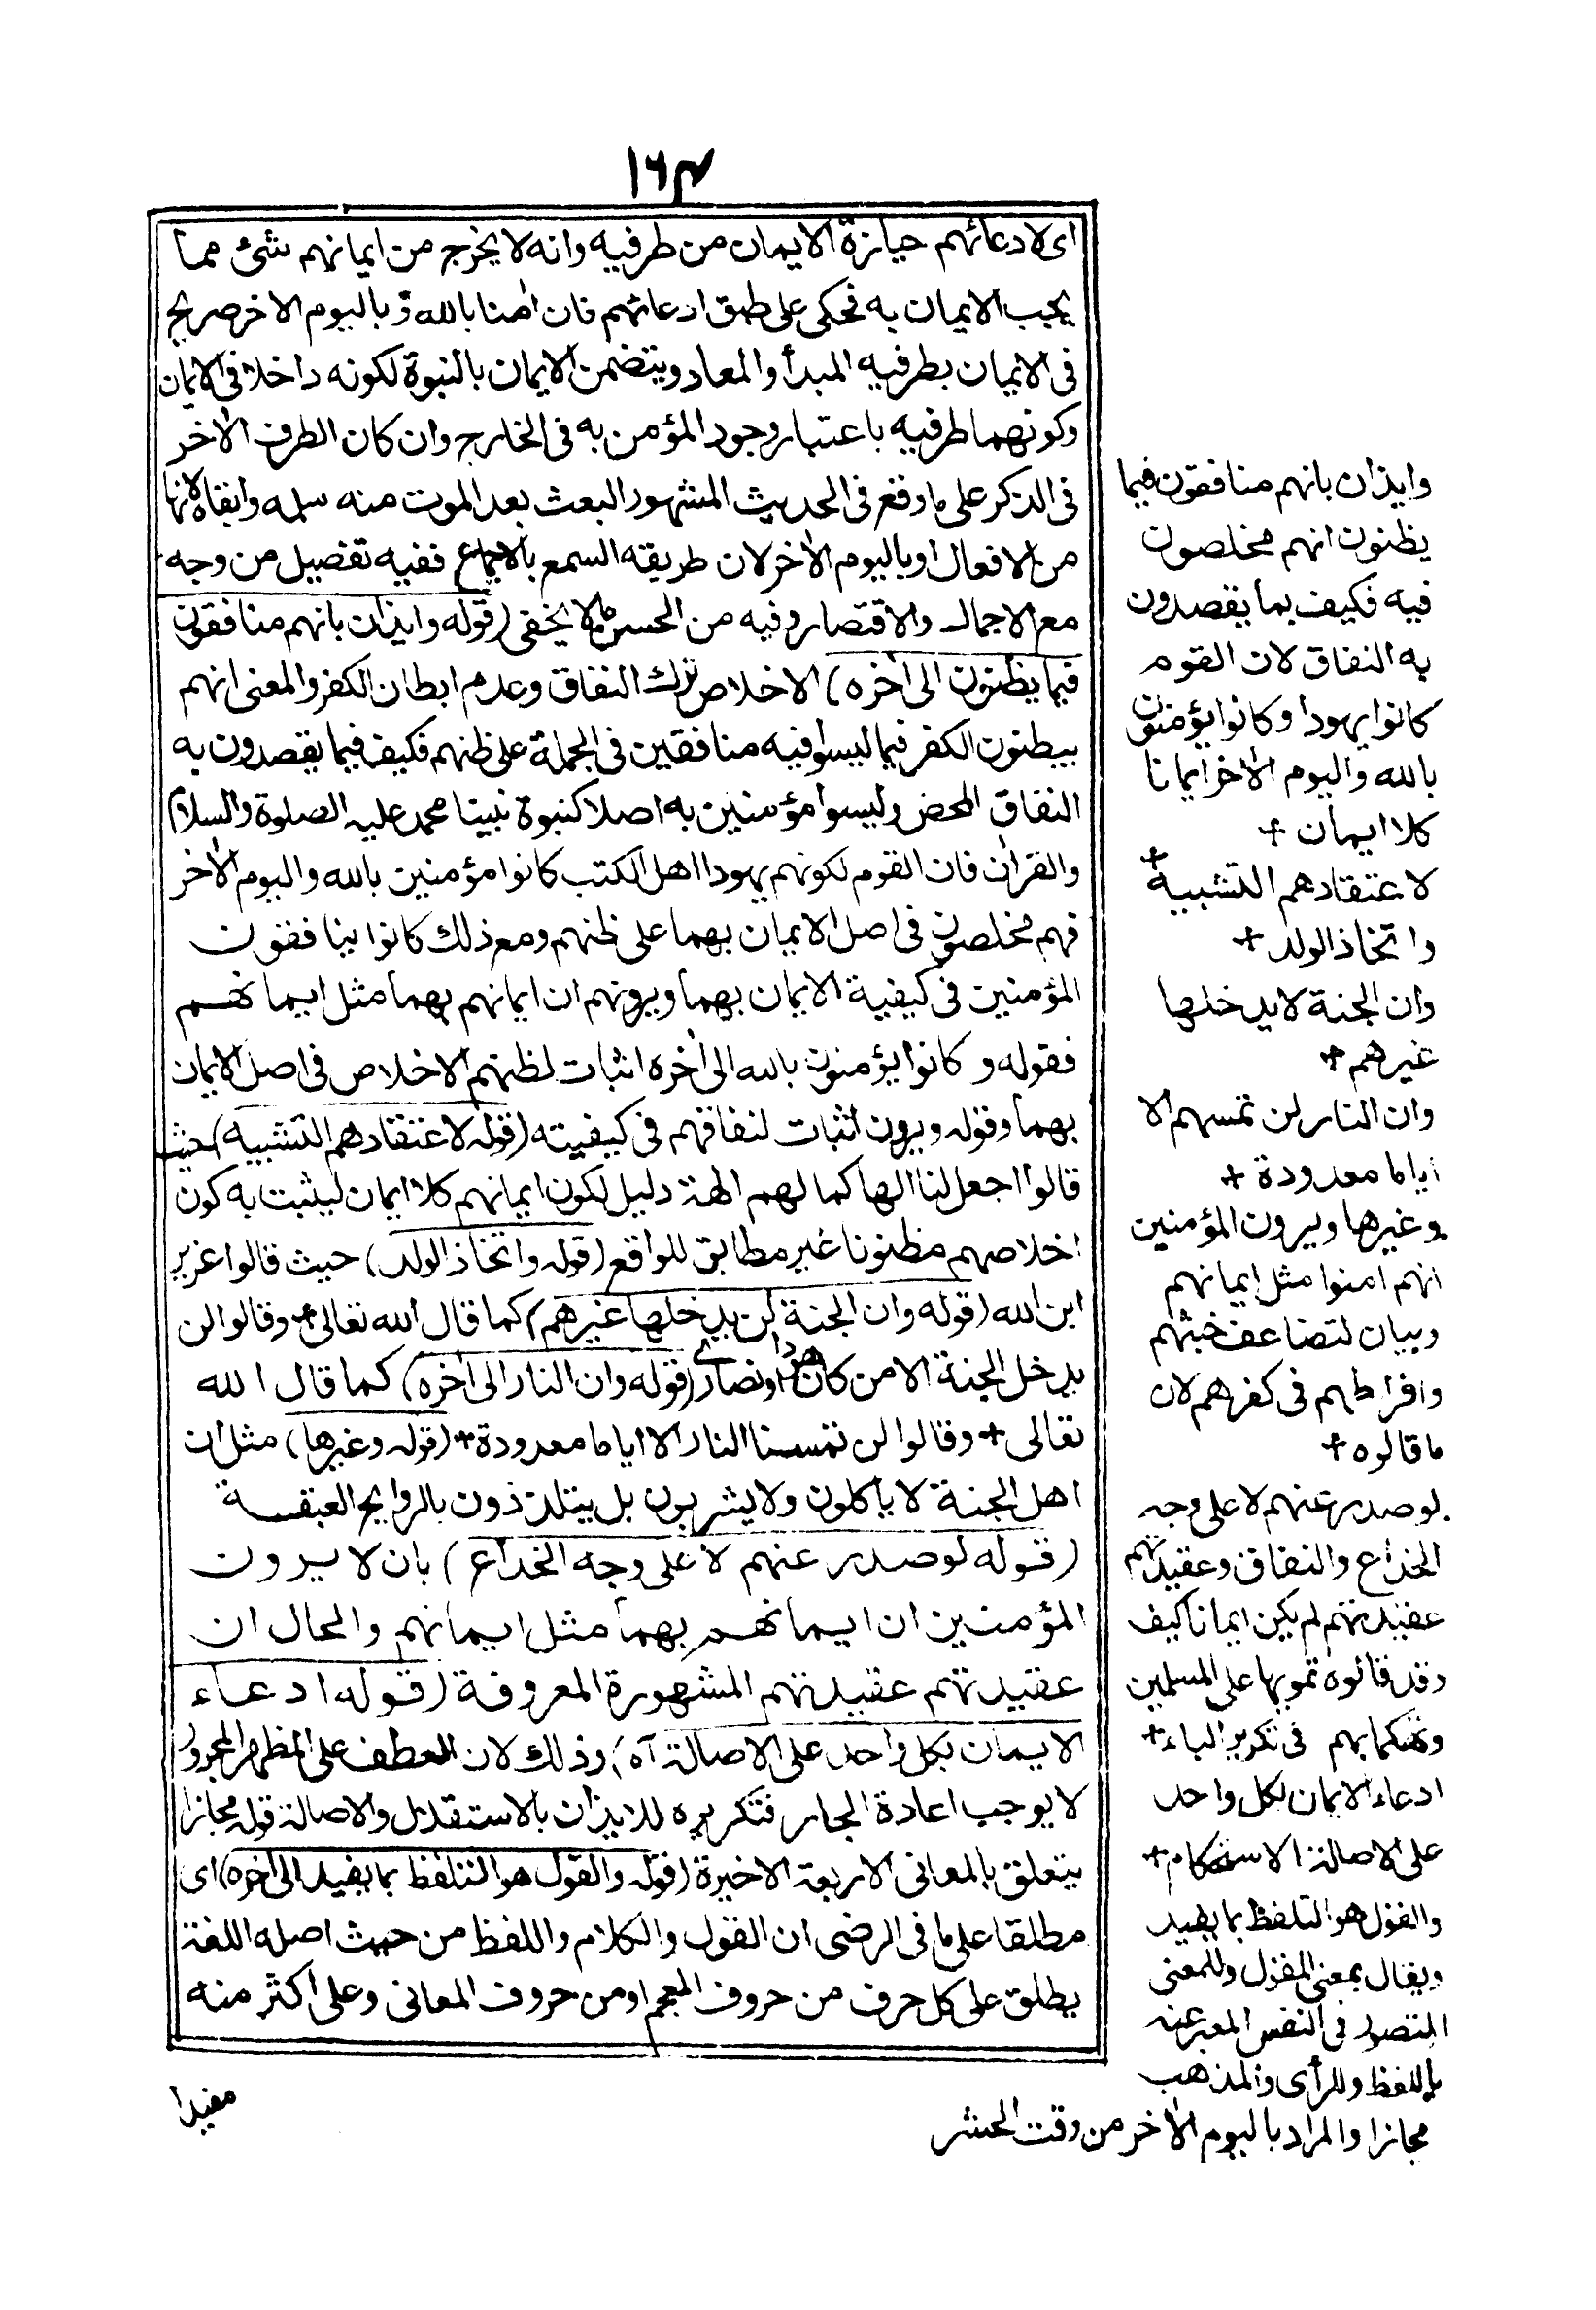 ١٦٣
اى لادعائهم حيازة الايمان من طرفيه وانه لا يخرج من ايمانهم شئ مما
يجب الايمان به فحكى على طبق ادعائهم فان اٰمنا بالله وباليوم الاخر صريح
فى الايمان بطرفيه المبدأ والمعاد ويتضمن الايمان بالنبوة لكونه داخلا فى الايمان
وكونهما طرفيه باعتبار وجود المؤمن به فى الخارج وان كان الطرف الاخر
فى الذكر على ما وقع فى الحديث المشهور البعث بعد الموت منه سلمه وابقاه لانها
من الافعال او باليوم الاٰخر لان طريقه السمع بالاجماع ففيه تفصيل من وجه
مع الاجمال والاقتصار وفيه من الحسن ما لا يخفى (قوله وايذان بانهم منافقون
فيما يظنون الى اٰخره) الاخلاص ترك النفاق وعدم ابطان الكفر والمعنى انهم
يبطنون الكفر فيما ليسوا فيه منافقين فى الجملة على ظنهم فكيف فيما يقصدون به
النفاق المحض وليسوا مؤمنين به اصلا كنبوة نبينا محمد عليه الصلوة والسلام
والقراٰن فان القوم لكونهم يهودا اهل الكتب كانوا مؤمنين بالله واليوم الاٰخر
فهم مخلصون فى اصل الايمان بهما على ظنهم ومع ذلك كانوا ينافقون
المؤمنين فى كيفية الايمان بهما ويرونهم ان ايمانهم بهما مثل ايمانهم
فقوله وكانوا يؤمنون بالله الى اٰخره اثبات لظنهم الاخلاص فى اصل الايمان
بهما وقوله ويرون اثبات لنفاقهم فى كيفيته (قوله لاعتقادهم التشبيه) حيث
قالوا اجعل لنا الها كما لهم الهة دليل لكون ايمانهم كلا ايمان ليثبت به كون
اخلاصهم مظنونا غير مطابق للواقع (قوله واتخاذ الولد) حيث قالوا عزير
ابن الله (قوله وان الجنة لن يدخلها غيرهم) كما قال الله تعالى + وقالوا لن
يدخل الجنة الا من كان هودا او نصارى (قوله وان النار الى اٰخره) كما قال الله
تعالى + وقالوا لن تمسنا النار الا اياما معدودة + (قوله وغيرها) مثل ان
اهل الجنة لا يأكلون ولا يشربون بل يتلذذون بالروايح العبقسة
(قوله لو صدر عنهم لا على وجه الخداع) بان لا يرون
المؤمنين ان ايمانهم بهما مثل ايمانهم والحال ان
عقيدتهم عقيدتهم المشهورة المعروفة (قوله ادعاء
الايمان بكل واحد على الاصالة اه) وذلك لان العطف على المظهر المجرور
لا يوجب اعادة الجار فتكريره للايذان بالاستقلال والاصالة قوله مجازا
يتعلق بالمعانى الاربعة الاخيرة (قوله والقول هو التلفظ بما يفيد الى اٰخره) اى
مطلقا على ما فى الرضى ان القول والكلام واللفظ من حيث اصله اللغة
يطلق على كل حرف من حروف المعجم او من حروف المعانى وعلى اكثر منه
مفيدا
وايذان بانهم منافقون فيما
يظنون انهم مخلصون
فيه فكيف بما يقصدون
به النفاق لان القوم
كانوا يهودا وكانوا يؤمنون
بالله واليوم الاٰخر ايمانا
كلا ايمان +
لاعتقادهم التشبيه +
واتخاذ الولد +
وان الجنة لا يدخلها
غيرهم +
وان النار لن تمسهم الا
اياما معدودة +
وغيرها ويرون المؤمنين
انهم امنوا مثل ايمانهم
وبيان لتضاعف خبثهم
وافراطهم فى كفرهم لان
ما قالوه +
لو صدر عنهم لا على وجه
الخداع والنفاق وعقيدتهم
عقيدتهم لم يكن ايمانا كيف
وقد قالوه تمويها على المسلمين
وتهكما بهم فى تكرير الباء +
ادعاء الايمان لكل واحد
على الاصالة الاستحكام +
والقول هو التلفظ بما يفيد
ويقال بمعنى المقول وللمعنى
المتصور فى النفس المعبر عنه
باللفظ وللرأى والمذهب
مجازا والمراد باليوم الاٰخر من وقت الحشر